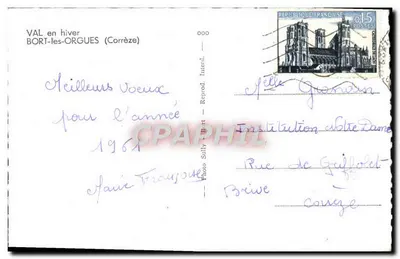 VAL en hiver
BORT-les-ORGUES (Corrèze)
000
REPUBLIQUE FRANÇAISE
0,15
Meilleurs voeux
pour l'année
1961
Marie Françoise
Photo Reprod. Interd.
CPAPHIL
Melle Grandin
Institution Notre Dame
Rue de
Brive
Corrèze